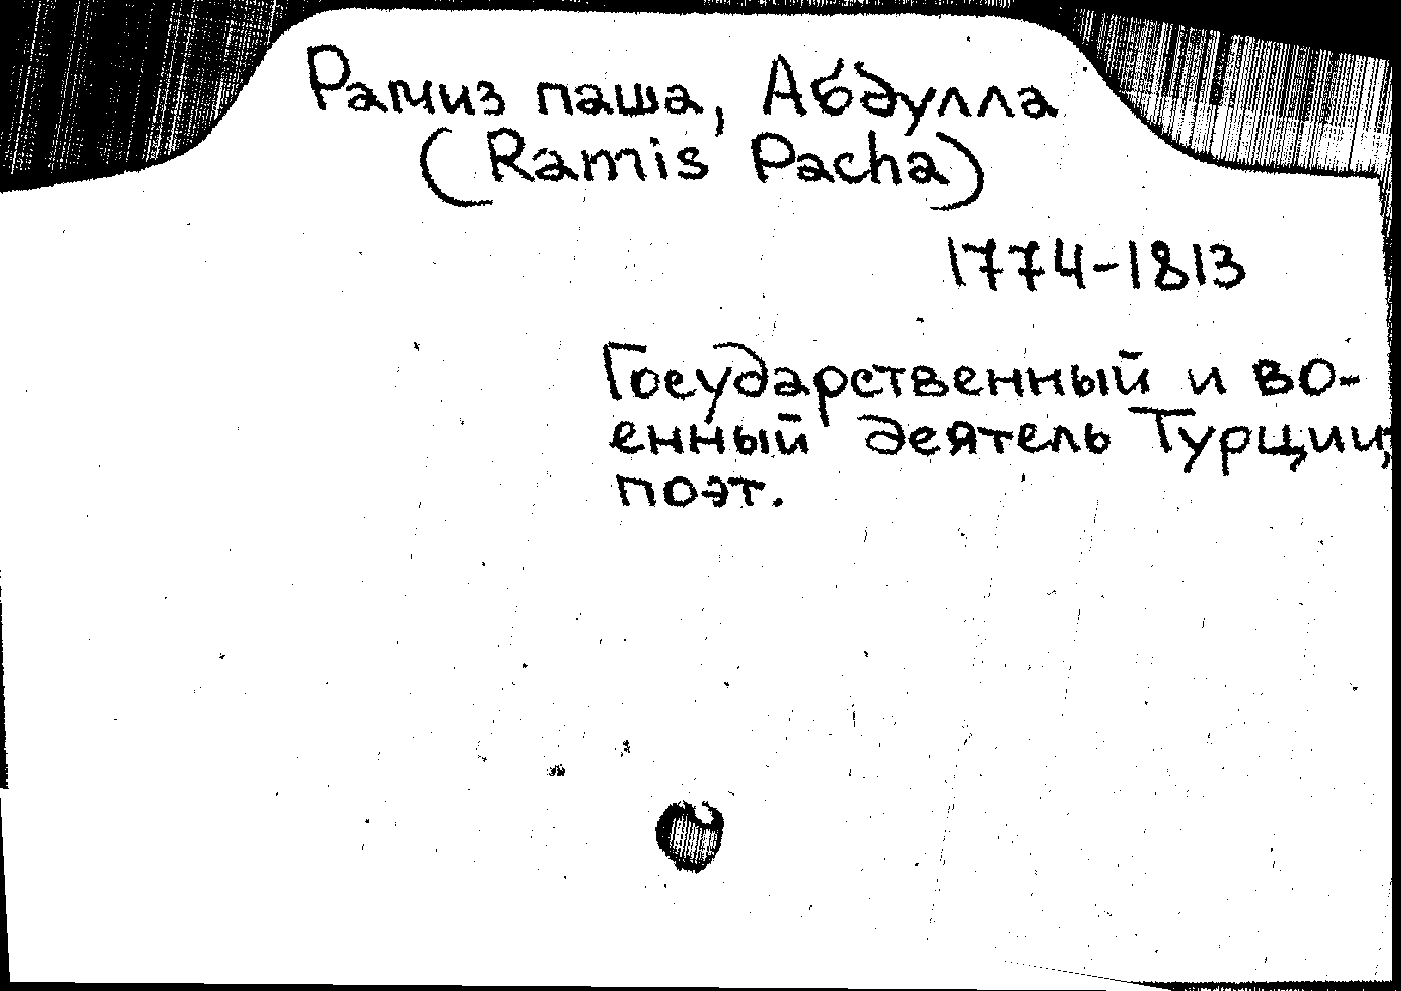 Рамиз паша, Абдулла
(Ramis Pacha)
1774-1813
Государственный и во-
енный деятель Турции,
поэт.